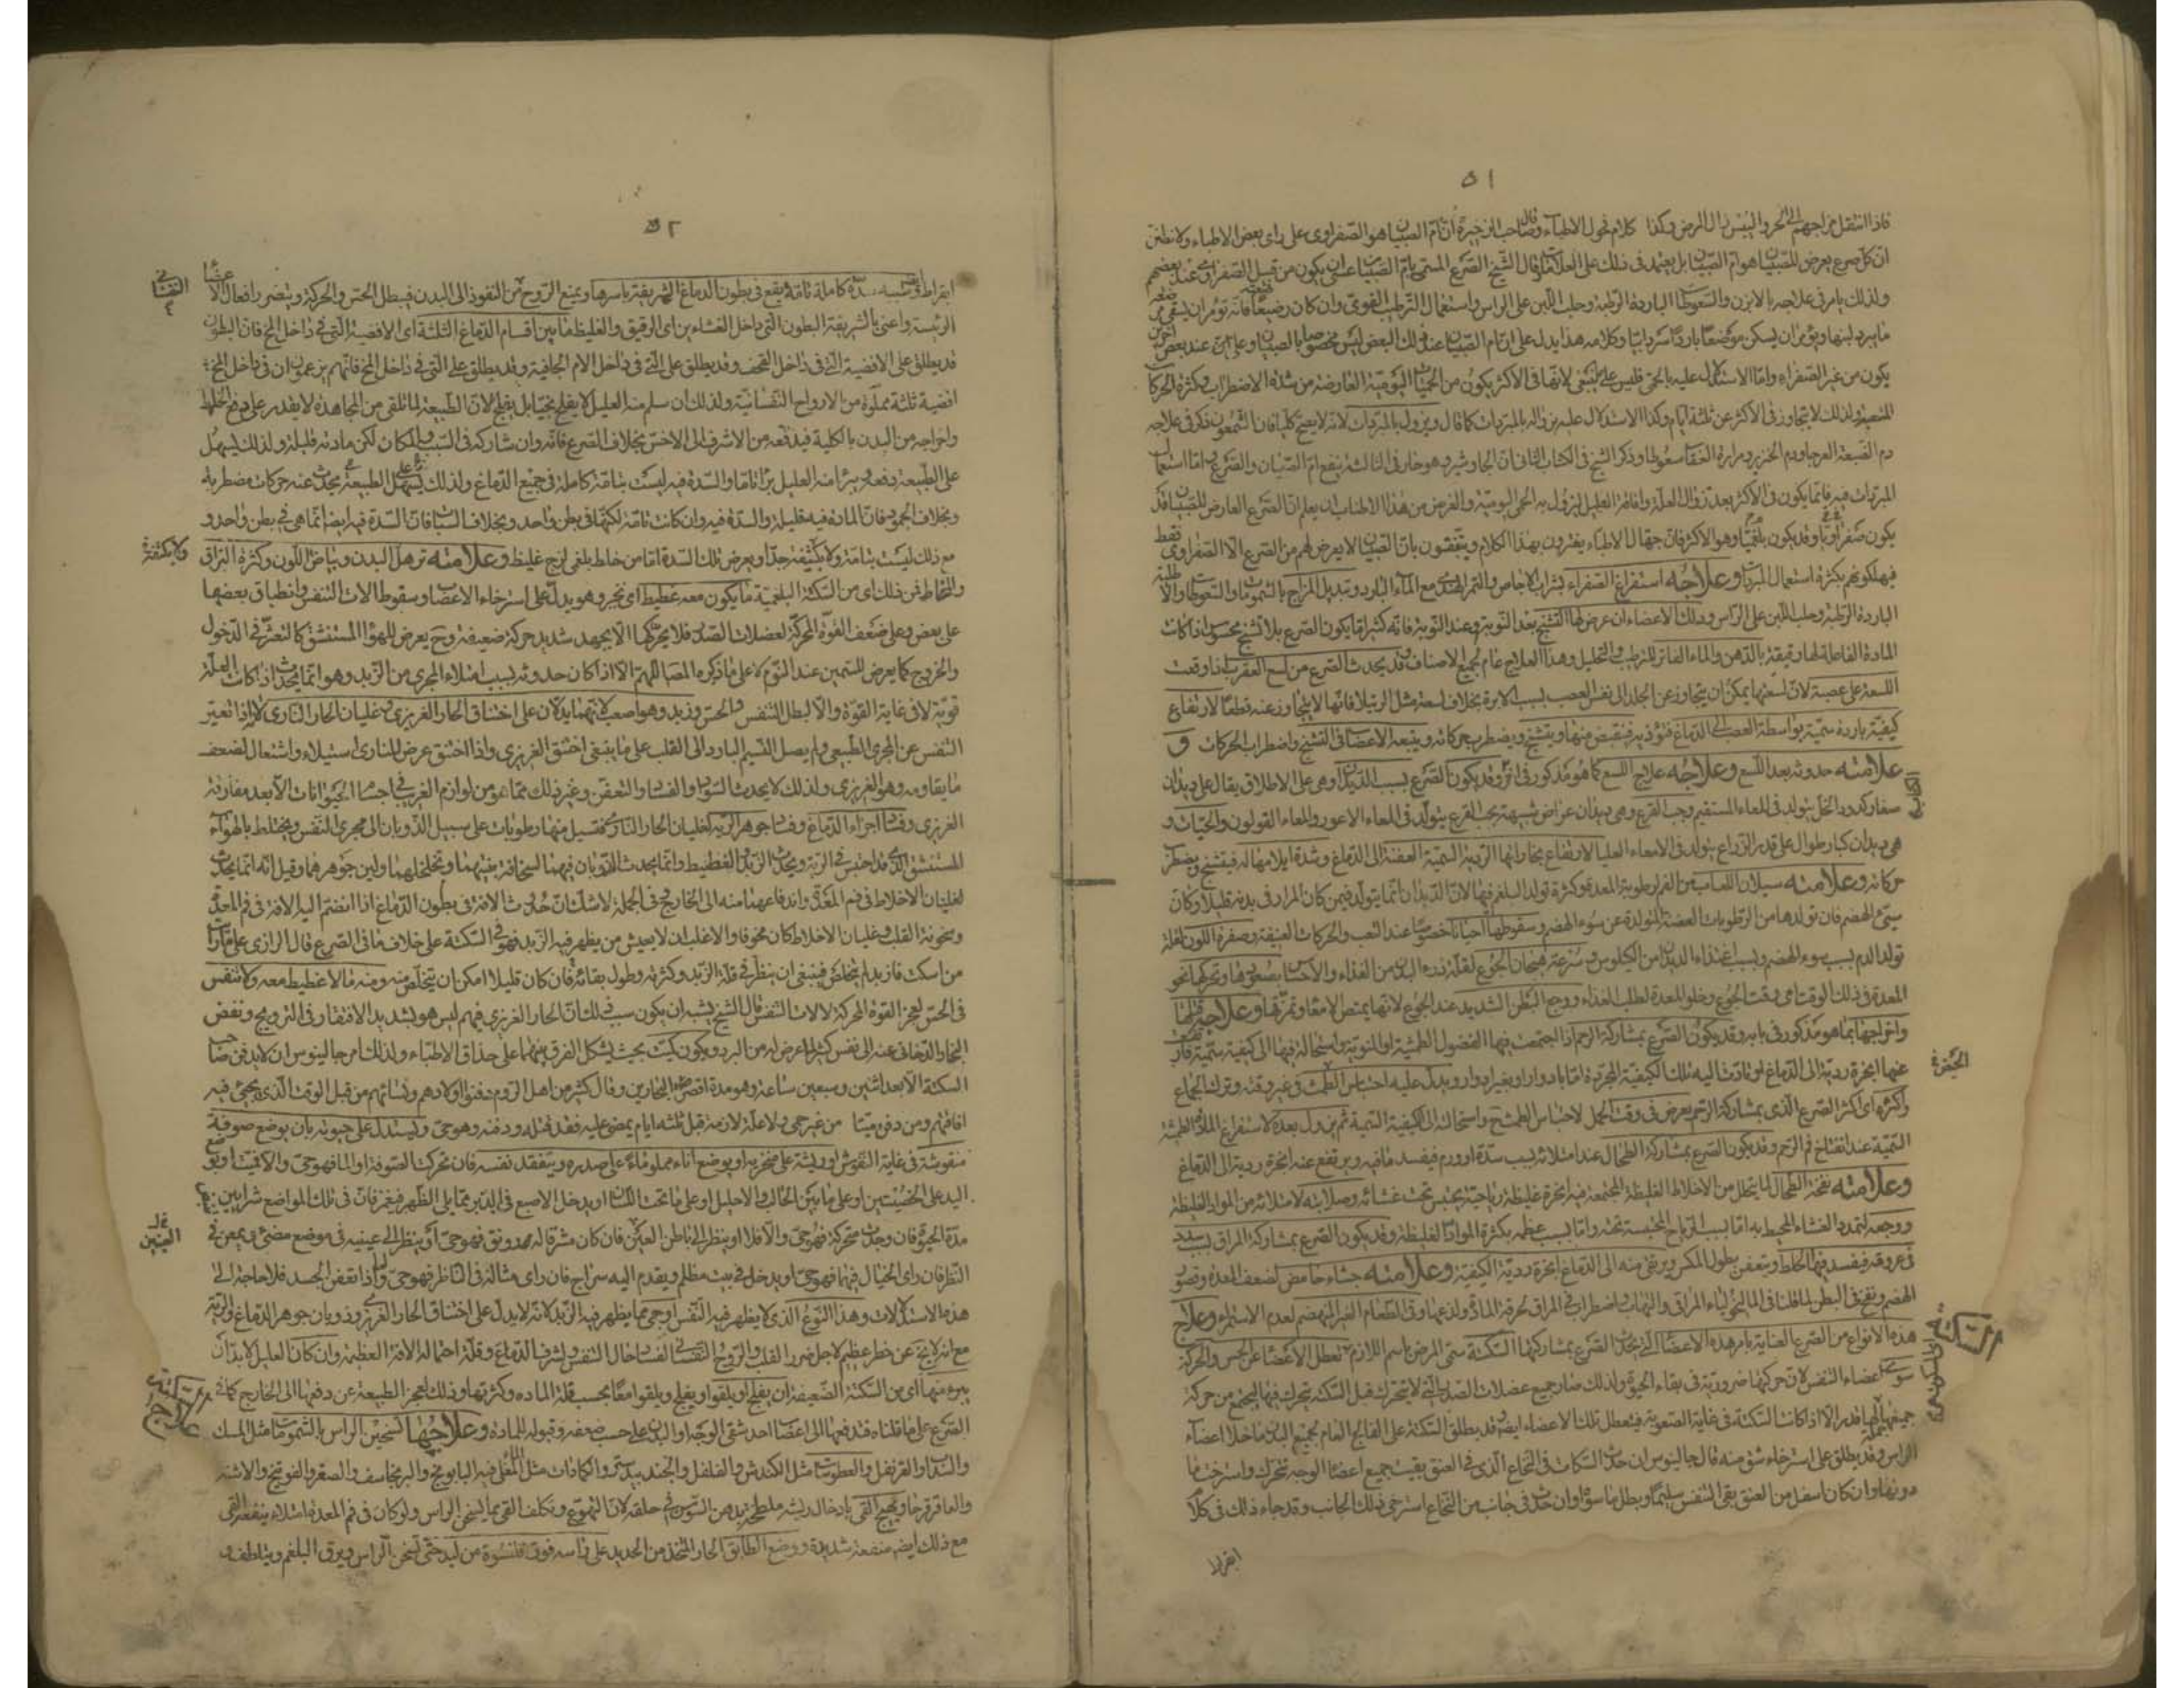 ٥١
فاذا انتقل مزاجهم الى الحر واليبس زال المرض وكذا كلام فحول الاطباء وقال صاحب الذخيرة ان ام الصبيان هو الصفراوى على راى بعض الاطباء ولا نظن
ان كل صرع يعرض للصبيان هو ام الصبيان بل يعتمد فى ذلك على العلامة وقال الشيخ الصرع المسمى بام الصبيان عسى ان يكون من قبيل الصفراوى عند بعضهم
ولذلك يامر فى علاجه بالابزن والسعوطات الباردة الرطبة وحلب اللبن على الراس واستعمال الترطيب القوى وان كان رضيعا فانه تؤمر ان يسقى مرضعته
ما يبرد لبنها ويؤمر ان يسكن موضعا باردا سردابيا وكلامه هذا يدل على ان ام الصبيان عند ذلك البعض ليس مخصوصا بالصبيان وعند بعض اخرين
يكون من غير الصفراء واما الاستدلال عليه بالحمى فليس على ما ينبغى لانها فى الاكثر يكون من الحميات اليومية العارضة من شدة الاضطراب وكثرة الحركات
المتعبة ولذلك لا يتجاوز فى الاكثر عن ثلثة ايام وكذا الاستدلال عليه بزواله بالمبردات كما قال ويزول بالمبردات لانه لا يصح كليا فان الشمعون ذكر فى علاجه
دم الضبعة العرجاء ودم الخنزير ومرارة سعوطا وذكر الشيخ فى الكتاب الثانى ان الجاوشير وهو حار فى الثالثة ينفع ام الصبيان والصرع واما استعمال
المبردات فيه فانما يكون فى الاكثر بعد زوال العلة وافاقة العليل ليزول به الحمى اليومية والغرض من هذا الاطناب ان يعلم ان الصرع العارض للصبيان قد
يكون صفراويا وقد يكون بلغميا وهو الاكثر فان جهال الاطباء يغترون بهذا الكلام ويتفقون بان الصبيان لا يعرض لهم من الصرع الا الصفراوى فقط
فيهلكونهم بكثرة استعمال المبردات وعلاجه استفراغ الصفراء بشراب الاجاص والتمر الهندى مع الماء البارد وتبديل المزاج بالشمومات والسعوطات والاطلية
الباردة الرطبة وحلب اللبن على الراس ودلك الاعضاء ان عرض لها التشنج بعد النوبة وعند النوبة فانه كثيرا ما يكون الصرع بلا تشنج محسوس اذا كانت
المادة الفاعلة لها رقيقة بالدهن والماء الفاتر للترطيب والتحليل وهذا العلاج عام لجميع الاصناف وقد يحدث الصرع من لسع العقرب اذا وقعت
اللسعة على عصبة لان لسعتها يمكن ان يتجاوز عن الجلد الى نفس العصب بسبب الابرة بخلاف لسعة مثل الرتيلا فانها لا يتجاوز عنه قطعا لارتفاع
كيفية باردة سمية بواسطة العصب الى الدماغ فتؤذيه فينقبض منها ويتشنج ويضطرب حركاته ويتبعه الاعضاء فى التشنج واضطراب الحركات و
علامته حدوثه بعد اللسع وعلاجه علاج اللسع كما هو مذكور فى وقد يكون الصرع بسبب الديدان وهى على الاطلاق يقال على ديدان
صغار كدود الخل يتولد فى المعاء المستقيم وحب القرع وهى ديدان عراض شبيهة بحب القرع يتولد فى المعاء الاعور والمعاء القولون والحيات و
هى ديدان كبار طوال على قدر الذراع يتولد فى الامعاء العليا لارتفاع بخاراتها الردية السمية العفنة الى الدماغ وشدة ايلامها له فيتشنج ويضطرب
حركاته وعلامته سيلان اللعاب من الفم لرطوبة المعدة وكثرة تولد البلغم فيها لان الديدان انما يتولد فيمن كان المرار فى بدنه قليلا وكان
سيئ الهضم فان تولدها من الرطوبات العفنة المتولدة عن سوء الهضم وسقوطها احيانا خصوصا عند التعب والحركات العنيفة وصفرة اللون لقلة
تولد الدم بسبب سوء الهضم وبسبب اغتذاء الديدان من الكيلوس وسرعة هيجان الجوع لقلة زرء البدن من الغذاء والاحساس بصعودها وتحركها نحو
المعدة فى ذلك الوقت اى وقت الجوع وخلو المعدة لطلب الغذاء ووجع البطن الشديد عند الجوع لانها يمتص الامعاء وتمزقها وعلاجه قتلها
واخراجها بما هو مذكور فى بابه وقد يكون الصرع بمشاركة الرحم اذا اجتمعت فيها الفضول الطمثية او المنوية واستحالة فيها الى كيفية سمية
عنها ابخرة ردية الى الدماغ او تادت اليه تلك الكيفية المجردة اما بادوار او بغير ادوار ويدل عليه احتباس الطمث فى غير وقته وترك الجماع
واكثره اى اكثر الصرع الذى بمشاركة الرحم يعرض فى وقت الحمل لاحتباس الطمث واستحالته الى الكيفية السمية ثم يزول بعده لاستفراغ المادة الطمثية
السمية عند انفتاح فم الرحم وقد يكون الصرع بمشاركة الطحال عند امتلائه بسبب سدة او ورم فيفسد ما فيه ويرتفع عنه ابخرة ردية الى الدماغ
وعلامته نفخة الطحال لما يتحلل من الاخلاط الغليظة المجتمعة فيه ابخرة غليظة رياحية يحتبس تحت غشائه وصلابته لامتلائه من المواد الغليظة
ووجعه لتمدد الغشاء المحيط به اما بسبب الرياح المحتبسة تحته واما بسبب عظمه بكثرة المواد الغليظة وقد يكون الصرع بمشاركة المراق بسبب سدد
فى عروقه فيفسد فيها الخلط ويتعفن بطول المكث ويرتقى منه الى الدماغ ابخرة ردية الكيفية وعلامته جشاء حامض لضعف المعدة وقصور
الهضم ونفخ فى البطن لما قلنا فى المالنخولياء المراقى والتهاب واضطراب فى المراق لحرقة المادة ولذعها وقئ الطعام الغير المنهضم لعدم الاستمراء وعلاج
هذه الانواع من الصرع العناية بامر هذه الاعضاء التى يحدث الصرع بمشاركتها السكتة سمى المرض باسم اللازم تعطل الاعضاء عن الحس والحركة
سوى اعضاء النفس لان حركتها ضرورية فى بقاء الحيوة ولذلك صار جميع عضلات الصدر التى لا يتحرك قبل السكتة تحرك فيها ليجتمع من حركة
جميعها قدر الا اذا كانت السكتة فى غاية الصعوبة فيتعطل تلك الاعضاء ايضا وقد يطلق السكتة على الفالج العام لجميع البدن ما خلا اعضاء
الراس وقد يطلق على استرخاء شق منه قال جالينوس ان حدث السكات فى النخاع الذى فى العنق بقيت جميع اعضاء الوجه تتحرك واسترخت ما
دونها وان كان اسفل من العنق بقى التنفس سليما وبطل ما سواه وان حدث فى جانب من النخاع استرخى ذلك الجانب وقد جاء ذلك فى كلام
ابقراط
السكتة
٥٢
ابقراط وسببه سدة كاملة تامة يقع فى بطون الدماغ الشريفة باسرها ويمنع الروح عن النفوذ الى البدن فيبطل الحس والحركة ويتضرر افعال الاعضاء
الرئيسة واعنى بالشريفة البطون التى داخل الغشاءين اى الرقيق والغليظ مابين اقسام الدماغ الثلثة اى الافضية التى فى داخل المخ فان البطون
قد يطلق على الافضية التى فى داخل القحف وقد يطلق على التى فى داخل الام الجافية وقد يطلق على التى فى داخل المخ فانهم يزعمون ان فى داخل المخ
افضية ثلثة مملوة من الارواح النفسانية ولذلك ان سلم منه العليل لا يفلج بجنبيه بل يفلج لان الطبيعة لما تلقى من المجاهدة لا تقدر على دفع الخلط
واخراجه من البدن بالكلية فيدفعه من الاشرف الى الاخس بخلاف الصرع فانه وان شاركه فى السبب والمكان لكن مادته قليلة ولذلك يسهل
على الطبيعة دفعه ويبرأ منه العليل برءا تاما والسدة فيه ليست بتامة كاملة فى جميع الدماغ ولذلك يحدث عنه حركات مضطربة
وبخلاف الجمود فان المادة فيه قليلة والسدة فيه وان كانت تامة لكنها فى بطن واحد وبخلاف السبات فان السدة فيه ايضا انما هى فى بطن واحد و
مع ذلك ليست بتامة ولا بكثيفة جدا ويعرض تلك السدة اما من خلط بلغمى لزج غليظ وعلامته ترهل البدن وبياض اللون وكثرة البزاق
والمخاط فمن ذلك اى من السكتة البلغمية ما يكون معه غطيط اى نخير وهو يدل على استرخاء الاعصاب وسقوط الات التنفس وانطباق بعضها
على بعض وعلى ضعف القوة المحركة لعضلات الصدر فلا يحركها الا بجهد شديد حركة ضعيفة وح يعرض للهواء المستنشق كالتعثر فى الدخول
والخروج كما يعرض للسمين عند النوم لا على ما ذكره المصنف اللهم الا اذا كان حدوثه بسبب امتلاء المجرى من الزبد وهو انما يحدث اذا كانت العلة
قوية لا فى غاية القوة والا لبطل التنفس والحس وزبد وهو اصعب لانهما يدلان على اختناق الحار الغريزى وغليان الحار النارى لانه اذا تغير
النفس عن المجرى الطبيعى ولم يصل النسيم البارد الى القلب على ما ينبغى اختنق الغريزى واذا اختنق عرض للنارى استيلاء واشتعال لضعف
ما يقاومه وهو الغريزى ولذلك لا يحدث السواد والفساد والتعفن وغير ذلك مما هو من لوازم الغريب فى اجسام الحيوانات الا بعد مفارقة
الغريزى وفساد اجزاء الدماغ وفساد جوهر الرية لغليان الحار النارى فتسيل منها رطوبات على سبيل الذوبان الى مجرى النفس ويختلط بالهواء
المستنشق الذى قد احتبس فى الرية ويحدث الزبد والغطيط وانما يحدث الذوبان فيهما لسخافة بنيتهما وتخلخلهما ولين جوهرهما وقيل انه انما يحدث
لغليان الاخلاط فى فم المعدة واندفاعها منه الى الخارج وفى الجملة لا شك ان حدوث الافة فى بطون الدماغ اذا انضم اليه الافة فى فم المعدة
وسخونة القلب وغليان الاخلاط كان مخوفا والاغلب ان لا يعيش من يظهر فيه الزبد فهو فى السكتة على خلاف ما فى الصرع قال الرازى على ما رايت
من اسكت فازبد لم يتخلص فينبغى ان ينظر فى قلة الزبد وكثرته وطول بقائه فان كان قليلا امكن ان يتخلص منه ومنه ما لا غطيط معه ولا تنفس
فى الحس لعجز القوة المحركة لالات التنفس قال الشيخ يشبه ان يكون سبب ذلك ان الحار الغريزى فيهم ليس هو بشديد الافتقار فى الترويح ونفض
البخار الدخانى عنه الى نفس كثير لما عرض له من البرد ويكون كميت بحيث يشكل الفرق بينهما على حذاق الاطباء ولذلك امر جالينوس ان لا يدفن صاحب
السكتة الا بعد اثنين وسبعين ساعة وهو مدة اقصر البحارين وقال كثير من اهل الروم دفنوا اولادهم ونسائهم من قبل الوقت الذى يجئ فيه
افاقتهم ومن دفن ميتا من غير حمى ولا علة لازمة قبل ثلثة ايام يمضى عليه فقد قتله ودفنه وهو حى ويستدل على حيوته بان يوضع صوفة
منفوشة فى غاية النفوش او ريشة على منخريه او يوضع اناء مملو ماء على صدره ويتفقد نفسه فان تحرك الصوفة او الماء فهو حى والا فميت او يوضع
اليد على الخصيتين او على ما بين الحالب والاحليل او على ما تحت اللسان او يدخل الاصبع فى الدبر مما يلى الظهر فيغمز فان فى تلك المواضع شرايين
مدة الحيوة فان وجدت متحركة فهو حى والا فلا او ينظر الى باطن العين فان كان مشرقا له رونق فهو حى او ينظر الى عينيه فى موضع مضئ ويمعن فى
النظر فان راى الخيال فيهما فهو حى او يدخل فى بيت مظلم ويقدم اليه سراج فان راى مثاله فى الناظر فهو حى واذا تعفن الجسد فلا حاجة الى
هذه الاستدلالات وهذا النوع الذى لا يظهر فيه النفس ارجى مما يظهر فيه الزبد لانه لا يدل على اختناق الحار الغريزى وذوبان جوهر الدماغ والرية
مع انه لا يخ عن خطر عظيم لاجل ضرر القلب والروح النفسانى لفساد حال التنفس ولشرف الدماغ وقلة احتماله الافة العظيمة وان كان العليل لا بد ان
يبرء منها اى من السكتة الضعيفة ان يفلج او يلقو او يفلج ويلقو معا بحسب قلة المادة وكثرتها وذلك لعجز الطبيعة عن دفعها الى الخارج كما فى
الصرع على ما قلناه فتدفعها الى اعضاء احد شقى الوجه او البدن على حسب ضعفه وقبوله للمادة وعلاجها تسخين الراس بالشمومات مثل المسك
والسذاب والقرنفل والعطوسات مثل الكندش والفلفل والجندبيدستر والكمادات مثل الماء المغلى فيه البابونج والبرنجاسف والصعتر والفوتنج والاشنة
والعاقرقرحا وتهييج القئ بادخال ريشة ملطخة بدهن السوسن فى حلقه لان التهوع وتكلف القئ مما يسخن الراس ولو كان فى فم المعدة امتلاء ينفعه القئ
مع ذلك ايضا منفعة شديدة ووضع الطابق الحار المتخذ من الحديد على راسه فوق قلنسوة من لبد حتى تسخن الراس ويرق البلغم ويتلطف و
ولا بكثيفة